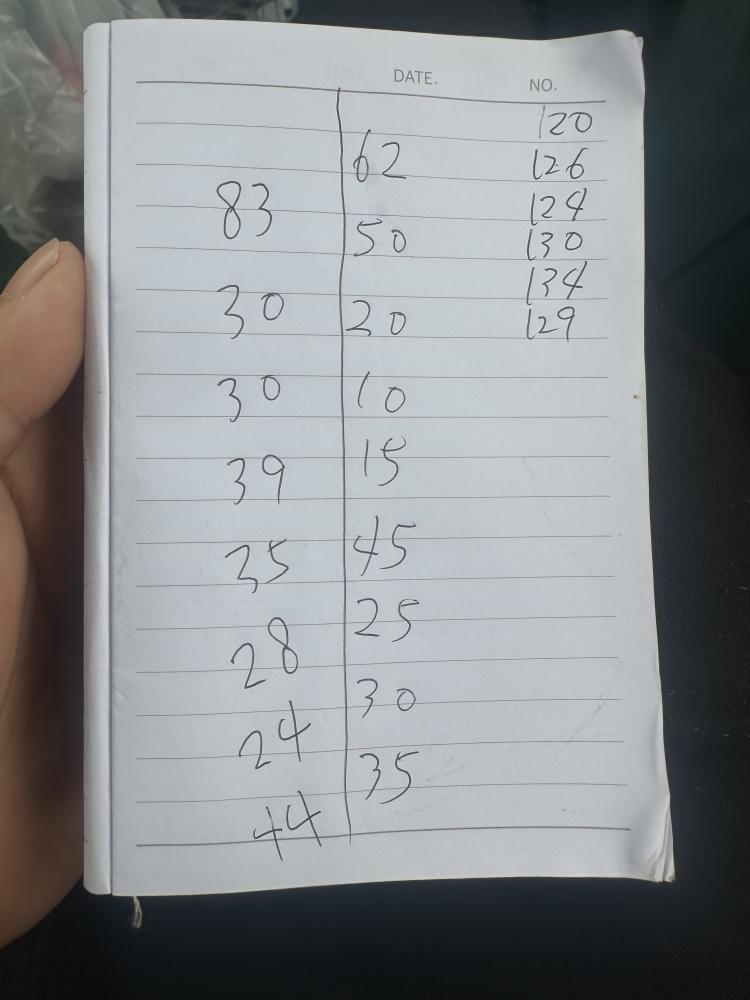 DATE. NO.
120
62 126
83 124
50 130
134
30 20 129
30 10
39 15
35 45
28 25
24 30
44 35